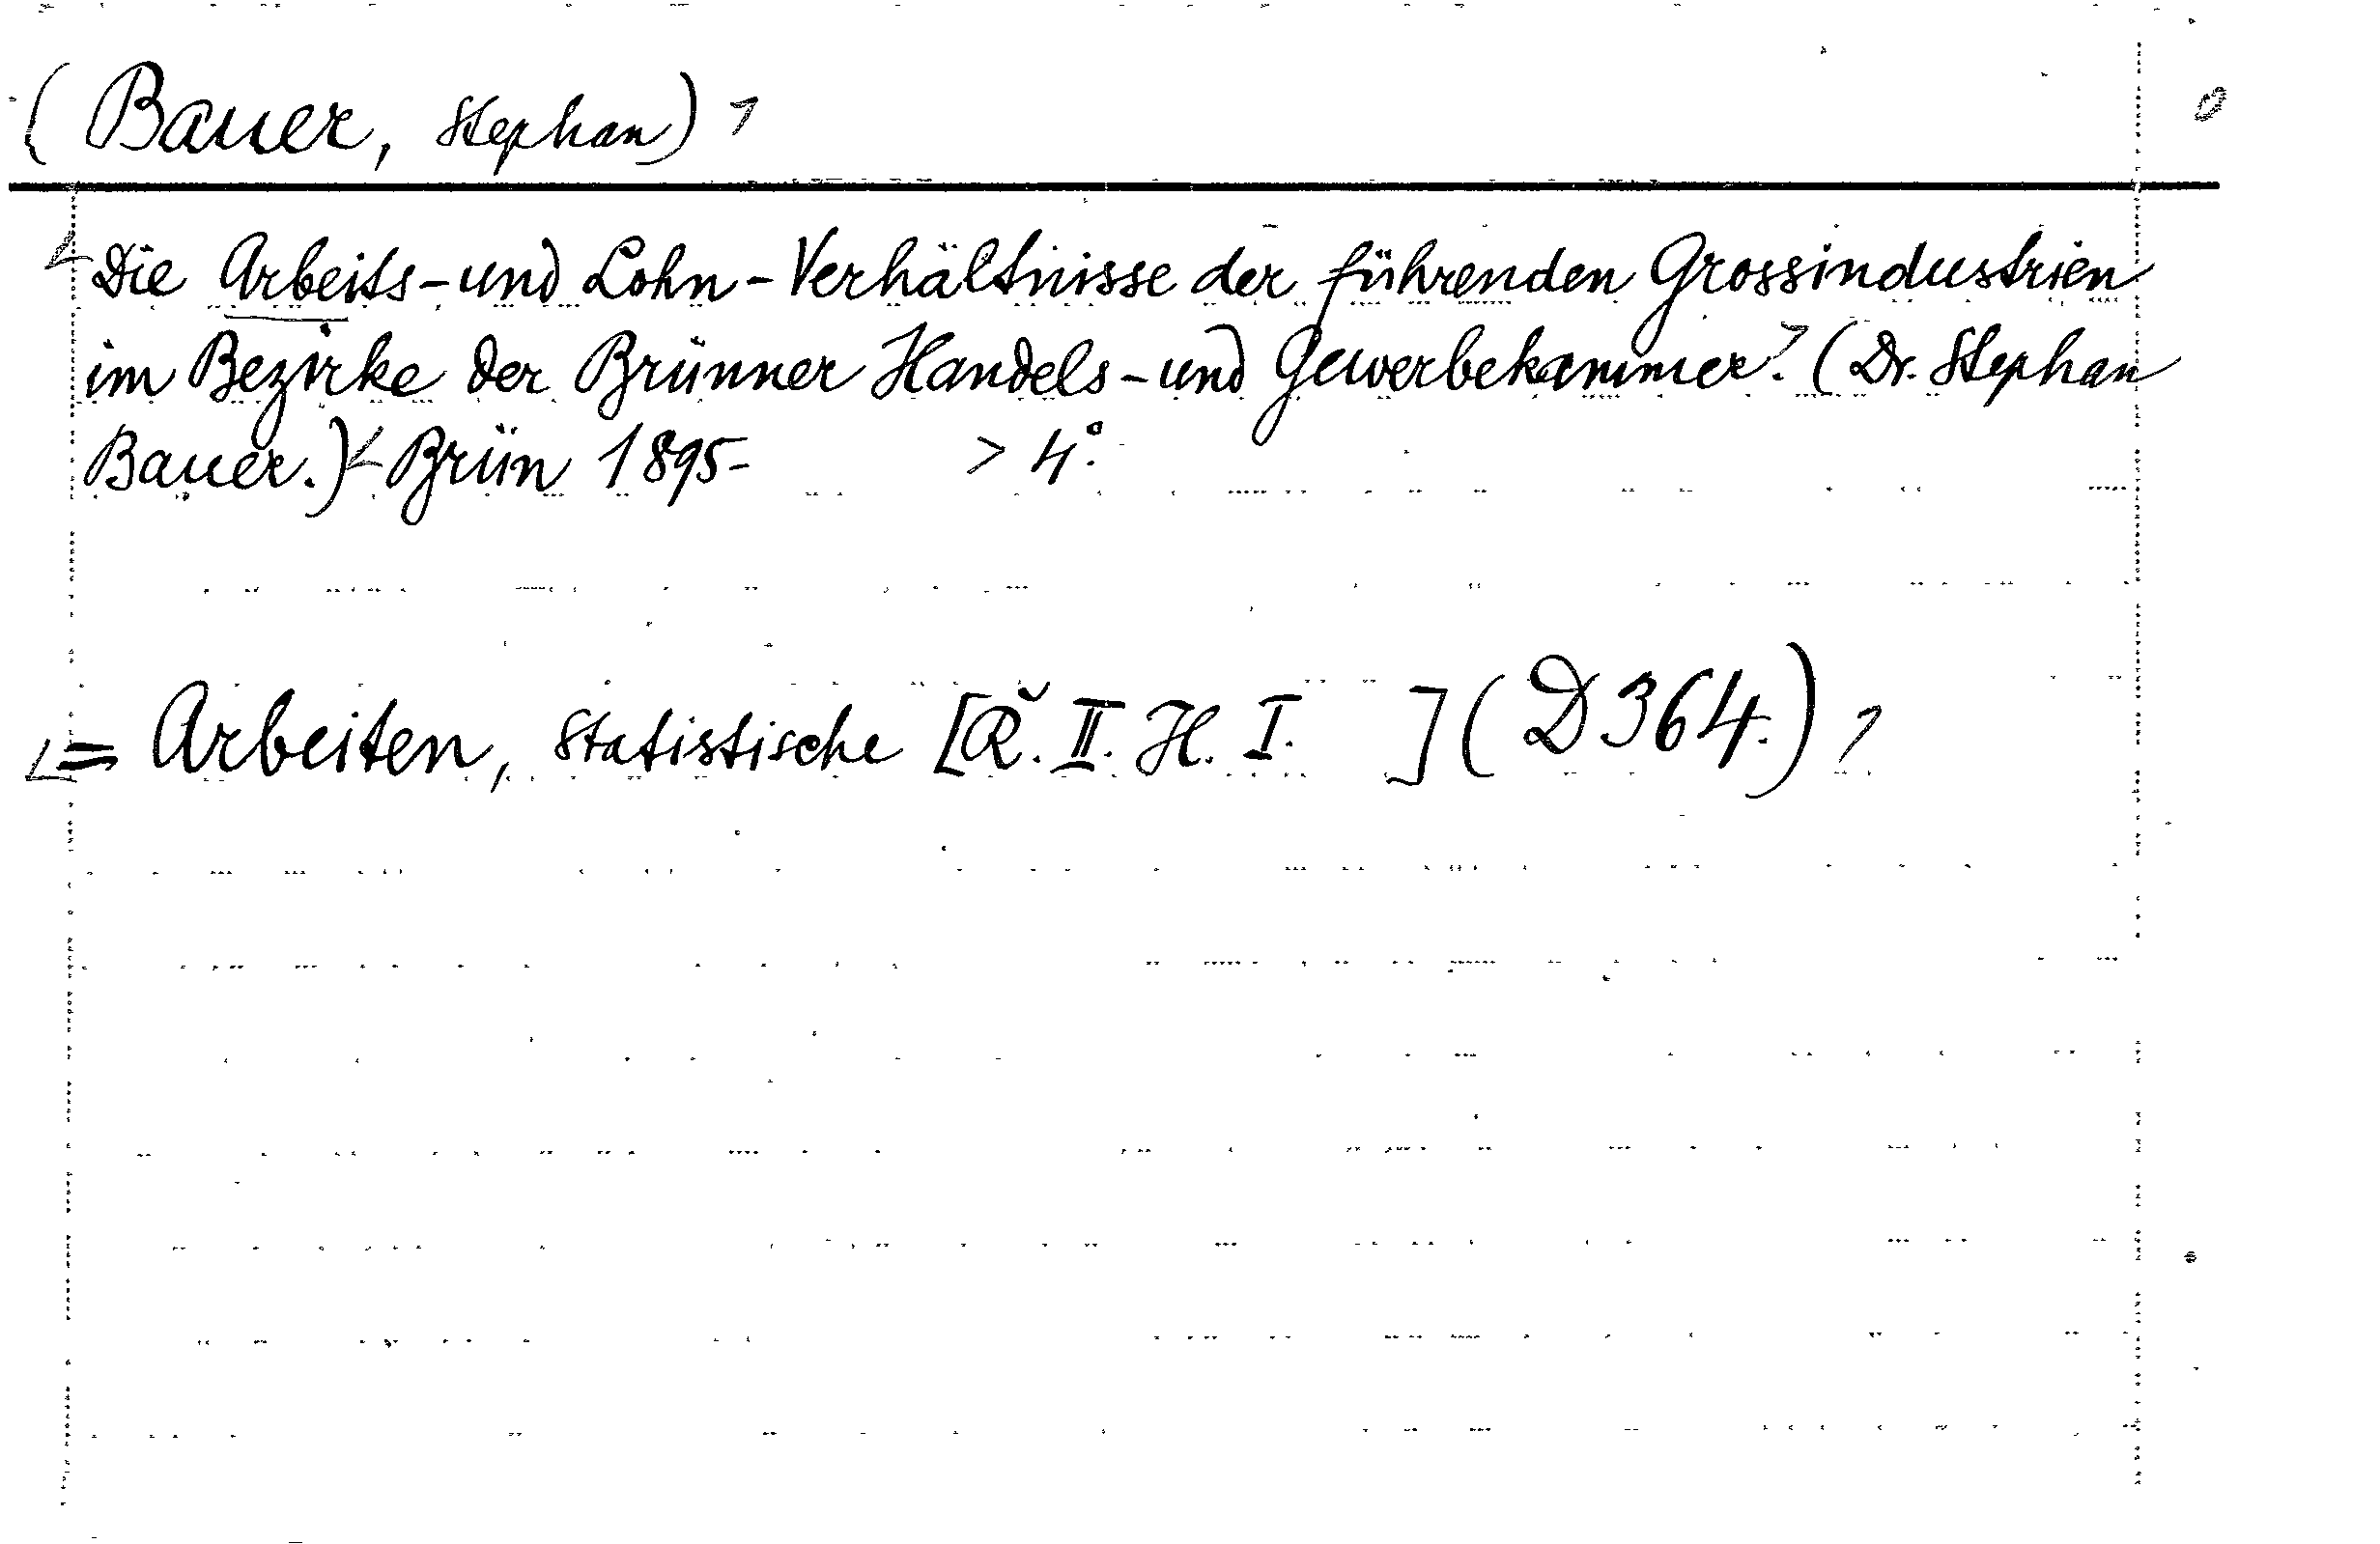 (Bauer, Stephan)
Die Arbeits-und Lohn-Verhältnisse der führenden Grossindustrien
im Bezirke der Brünner Handels-und Gewerbekammer. (Dr. Stephan
Bauer.) Brün 1895- 4°.
= Arbeiten, statistische [Ř. II. H. I. ] (D364.)